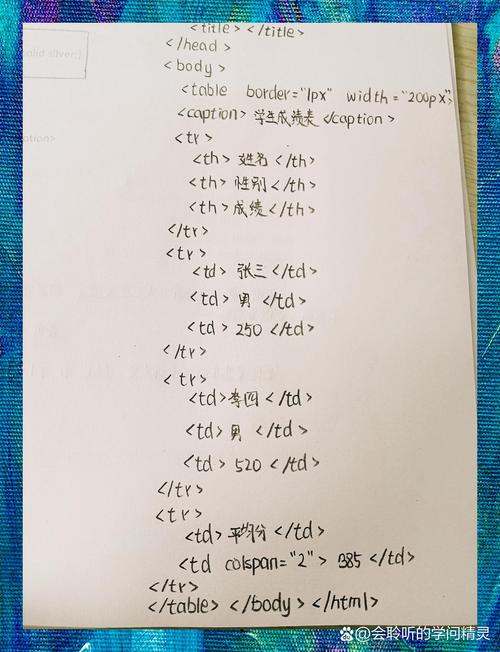 <title> </title>
</head>
olid silver;}
<body>
<table border="1px" width="200px">
<caption> 学生成绩表 </caption>
<tr>
<th> 姓名 </th>
<th> 性别 </th>
<th> 成绩 </th>
</tr>
<tr>
<td> 张三 </td>
<td> 男 </td>
<td> 250 </td>
</tr>
<tr>
<td> 李四 </td>
<td> 男 </td>
<td> 520 </td>
</tr>
<tr>
<td> 平均分 </td>
<td colspan="2"> 385 </td>
</tr>
</table> </body> </html>
会聆听的学问精灵